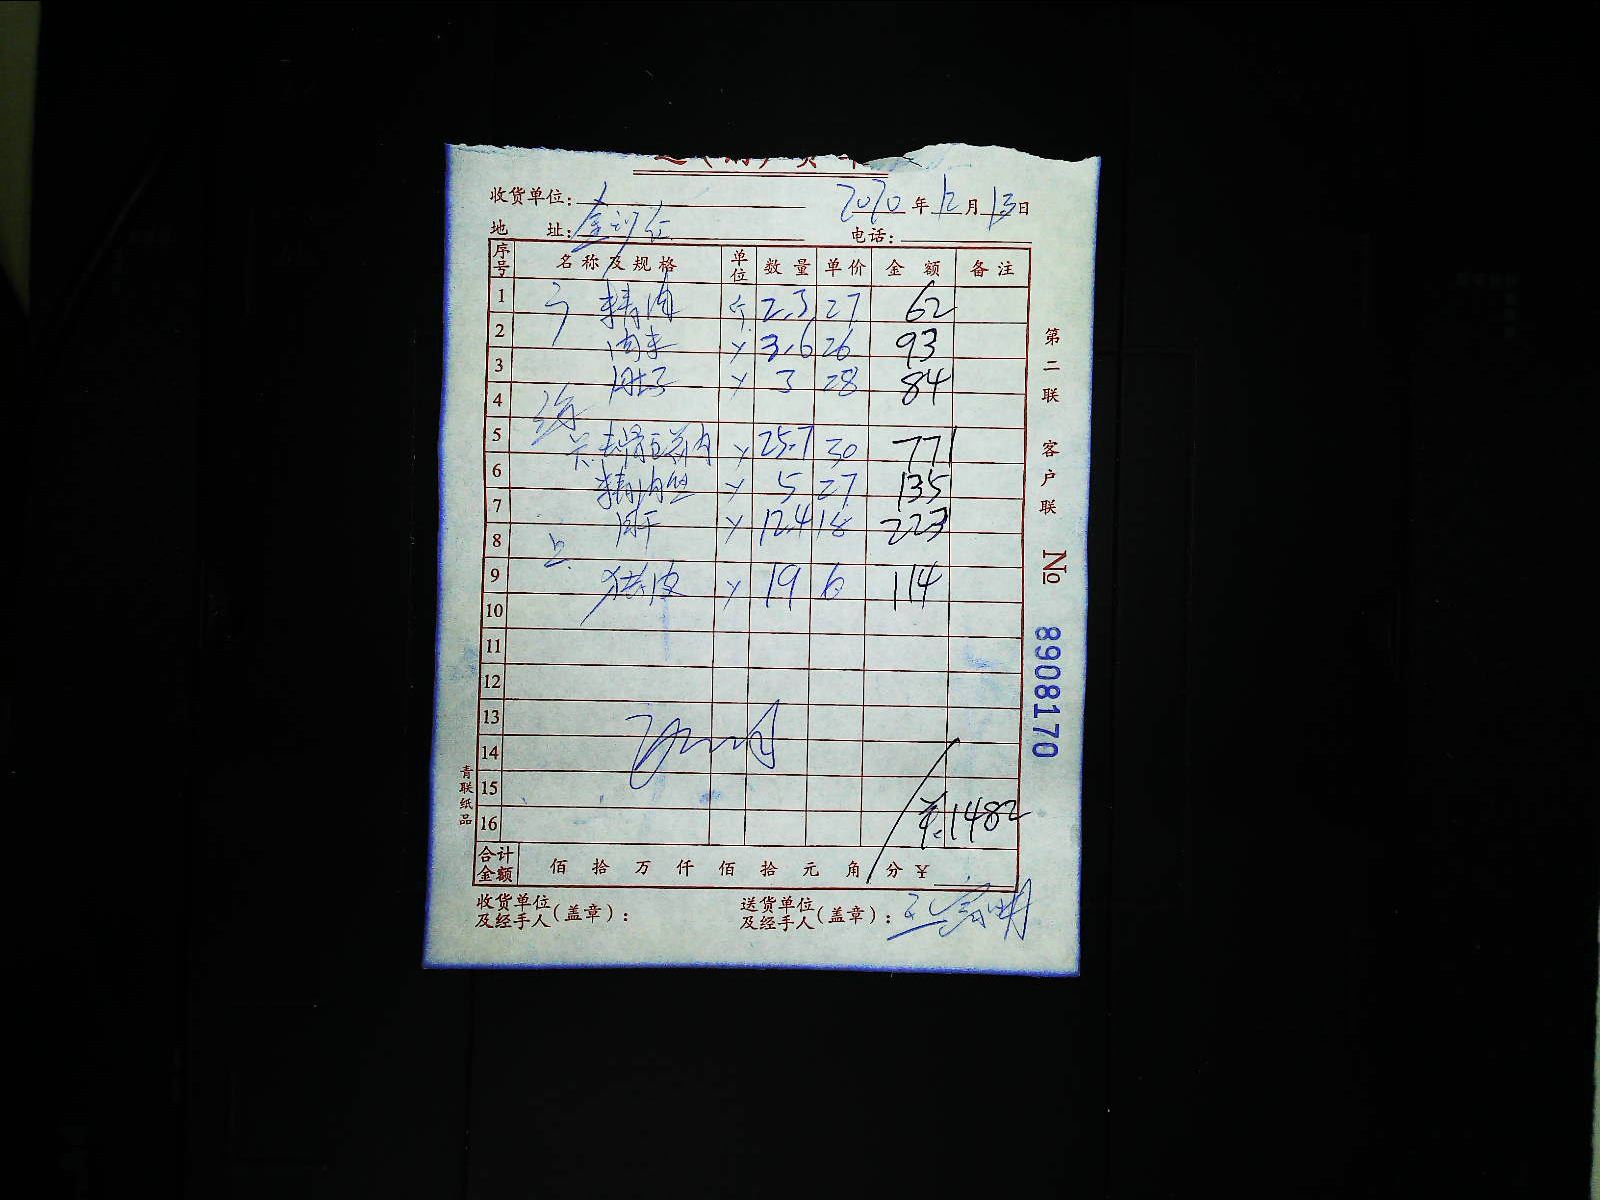 收货单位:
2020年12月13日
地 址:
电话:
序号 名称及规格 单位 数量 单价 金额 备注
1 精肉 斤 2.3 27 62
2 肉末 〃 3.6 26 93
3 〃 3 28 84
4
5 〃 25.7 30 771
6 精肉丝 〃 5 27 135
7 〃 12.4 18 223
8
9 猪皮 〃 19 6 114
10
11
12
13
14
15
16 ¥:1482
合计金额 佰 拾 万 仟 佰 拾 元 角 分 ¥
收货单位及经手人(盖章):
送货单位及经手人(盖章):
第二联 客户联 № 8908170
青联纸品